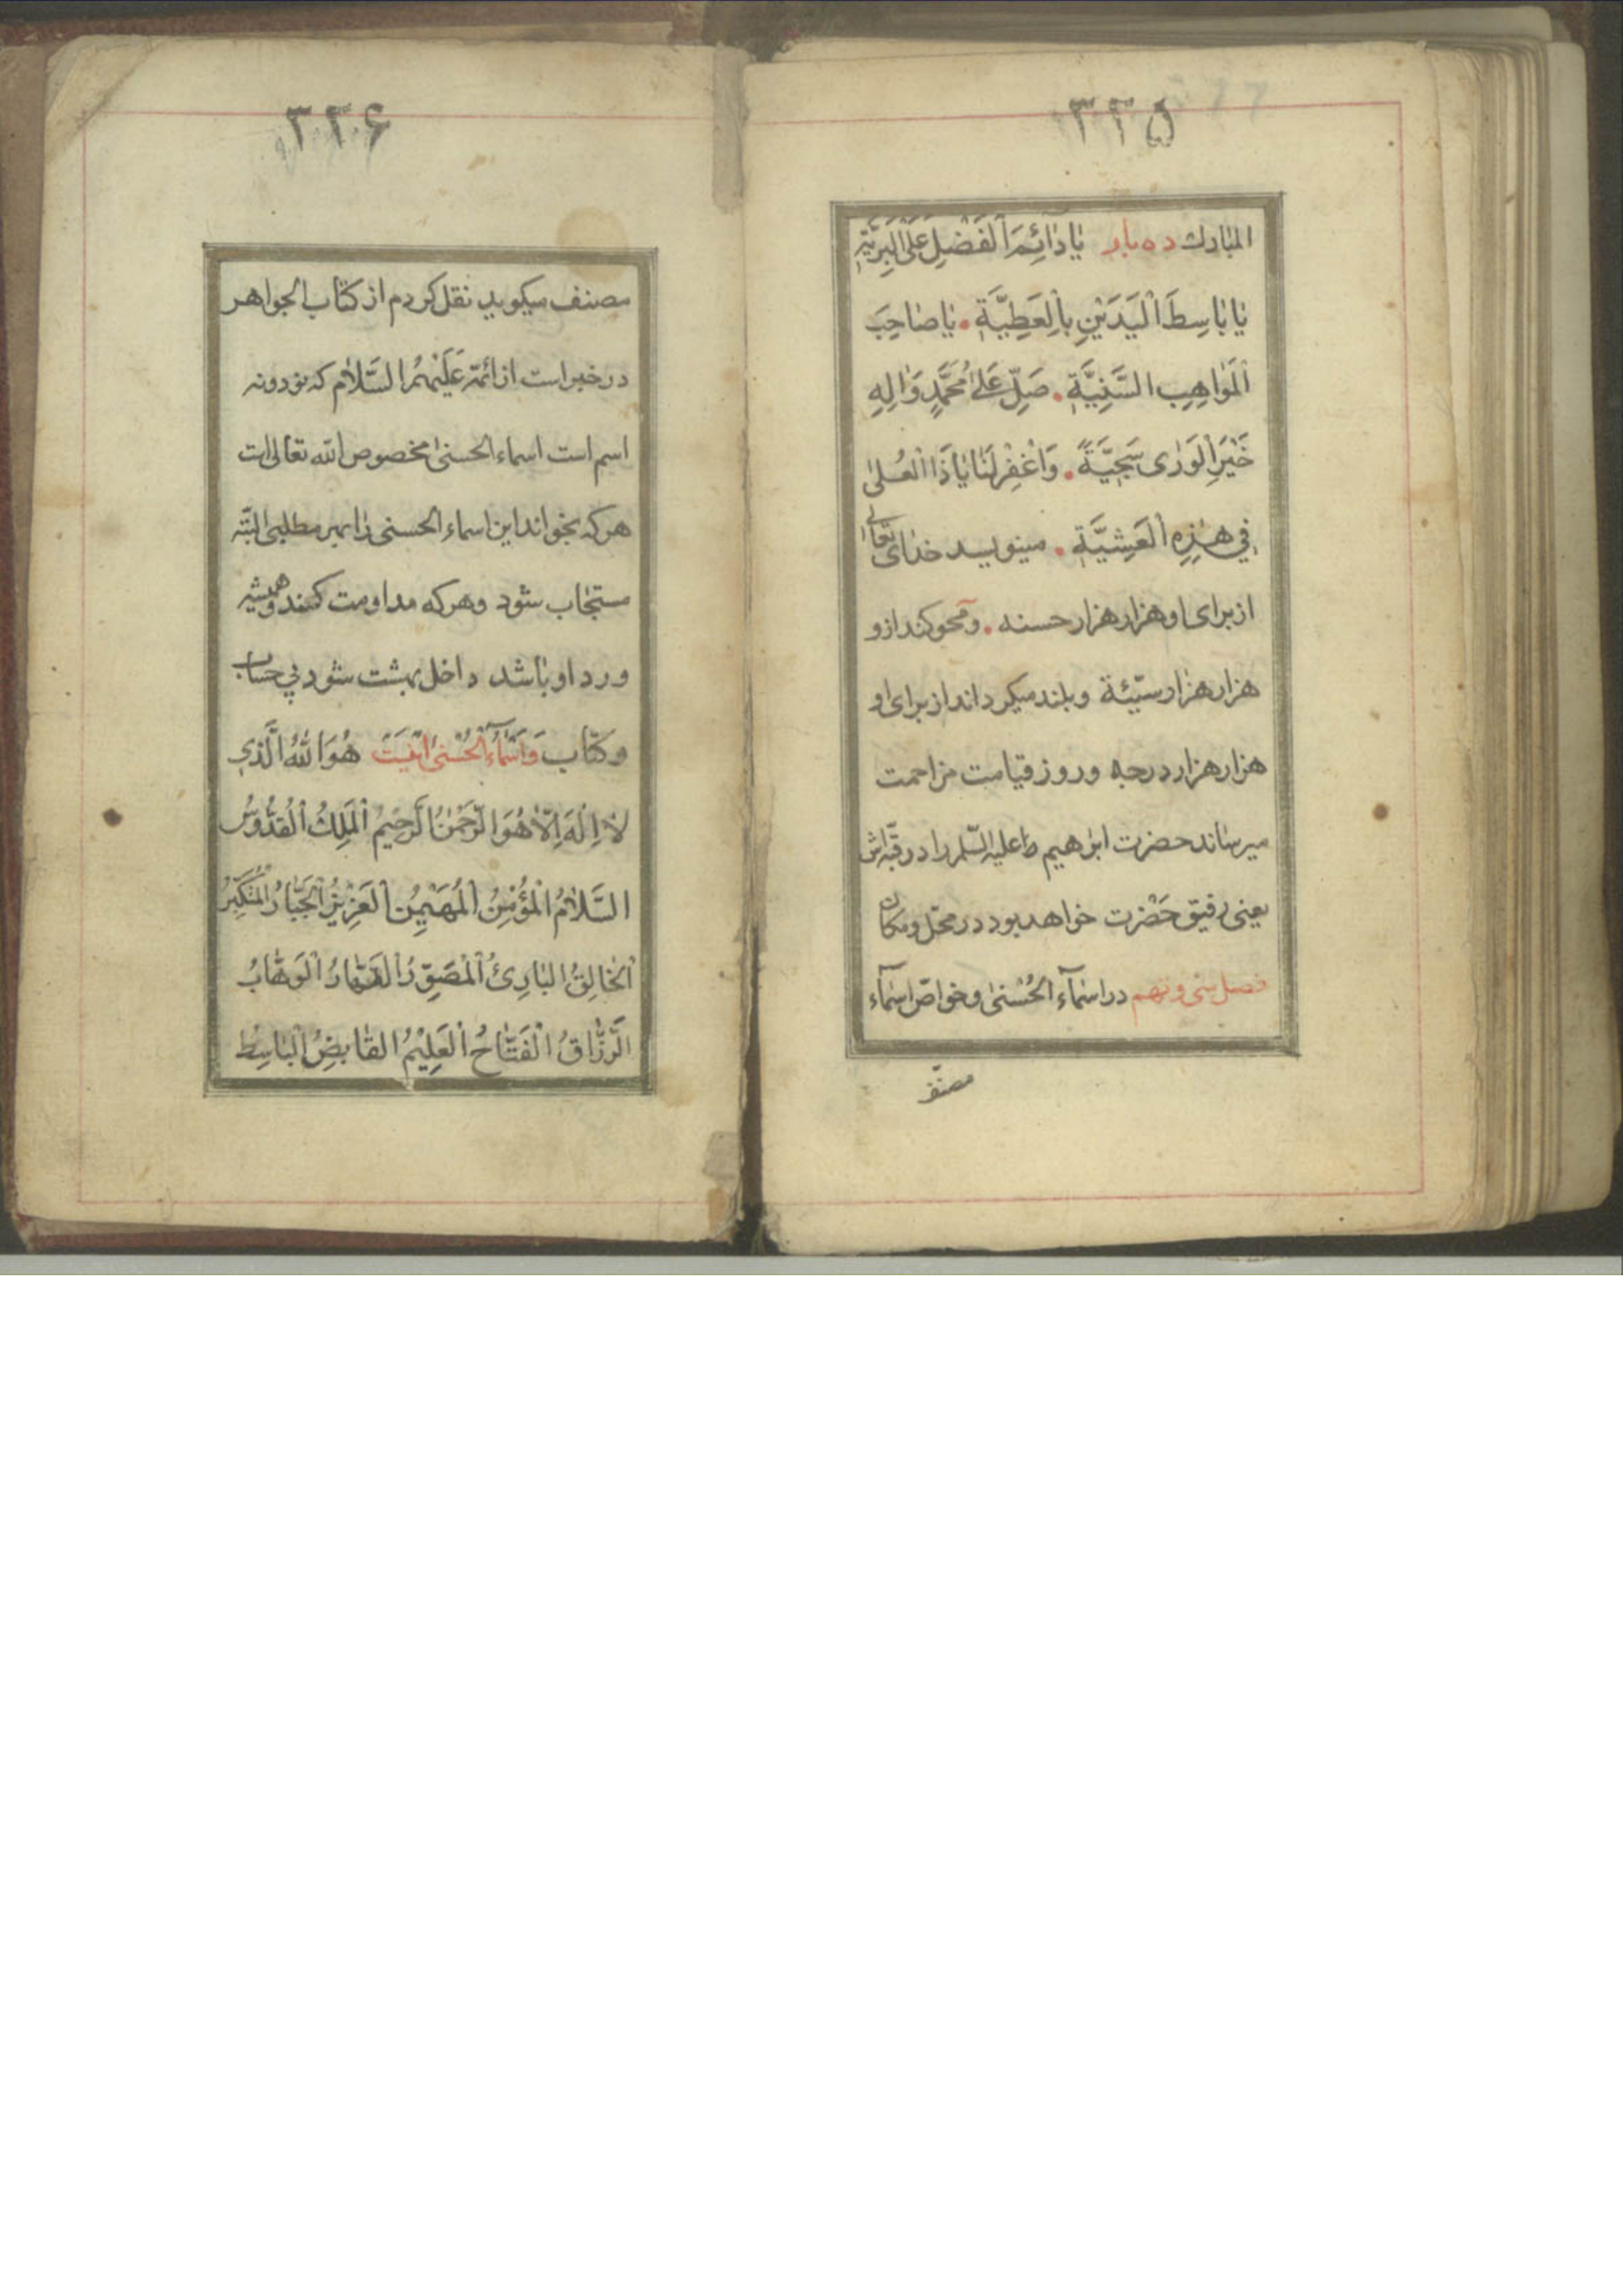 ۳۳۵
المبارك ده بار يا دٰآئِمَ الْفَضْلِ عَلَى الْبَرِيَّةِ
يٰا بٰاسِطَ الْيَدَيْنِ بِالْعَطِيَّةِ . يٰا صٰاحِبَ
الْمَوٰاهِبِ السَّنِيَّةِ . صَلِّ عَلىٰ مُحَمَّدٍ وَاٰلِهِ
خَيْرِ الْوَرٰى سَجِيَّةً . وَاغْفِرْ لَنٰا يٰا ذَا الْعُلىٰ
فِي هٰذِهِ الْعَشِيَّةِ . مينويسد خداى تعالى
از براى او هزار هزار حسنه . ومحو كند ازو
هزار هزار سيّئة وبلند ميكرداند از براى او
هزار هزار درجه وروز قيامت مزاحمت
ميرساند حضرت ابرٰهيم عليه السّلم را در قبّه اش
يعنى رفيق حَضْرت خواهد بود در محلّ ومكان
فصل سى ونهم در اسمآء الحُسْنىٰ وخواصّ اسمآء
مصنّف
۳۳۶
مصنف ميكويد نقل كردم از كتاب الجواهر
در خبر است از ائمّة عَلَيْهِمُ السَّلاٰم كه نود ونه
اسم است اسماء الحسنىٰ مخصوص الله تعالى است
هر كه بخواند اين اسماء الحسنى را بهر مطلبى البتّه
مستجاب شود وهركه مداومت كند وهميشه
ورد او باشد داخل بهشت شود بي حساب
وكتاب وَاسْمٰاءُ الْحُسْنىٰ اينست هُوَ اللهُ الَّذِي
لاٰ اِلٰهَ اِلّاٰ هُوَ الرَّحْمٰنُ الرَّحِيمُ الْمَلِكُ الْقُدُّوسُ
السَّلاٰمُ الْمُؤْمِنُ الْمُهَيْمِنُ الْعَزِيزُ الْجَبّٰارُ الْمُتَكَبِّرُ
الْخٰالِقُ الْبٰارِئُ الْمُصَوِّرُ الْقَهّٰارُ الْوَهّٰابُ
الرَّزّٰاقُ الْفَتّٰاحُ الْعَلِيْمُ الْقٰابِضُ الْبٰاسِطُ